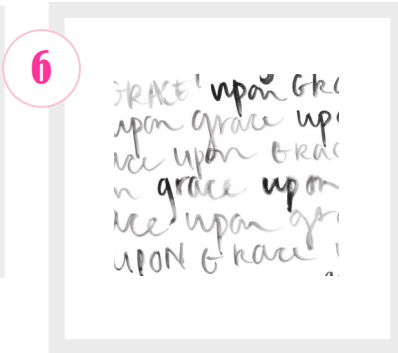 6
GRACE upon GRA
upon grace up
ace upon GRAC
n grace upon
ace upon gra
UPON Grace